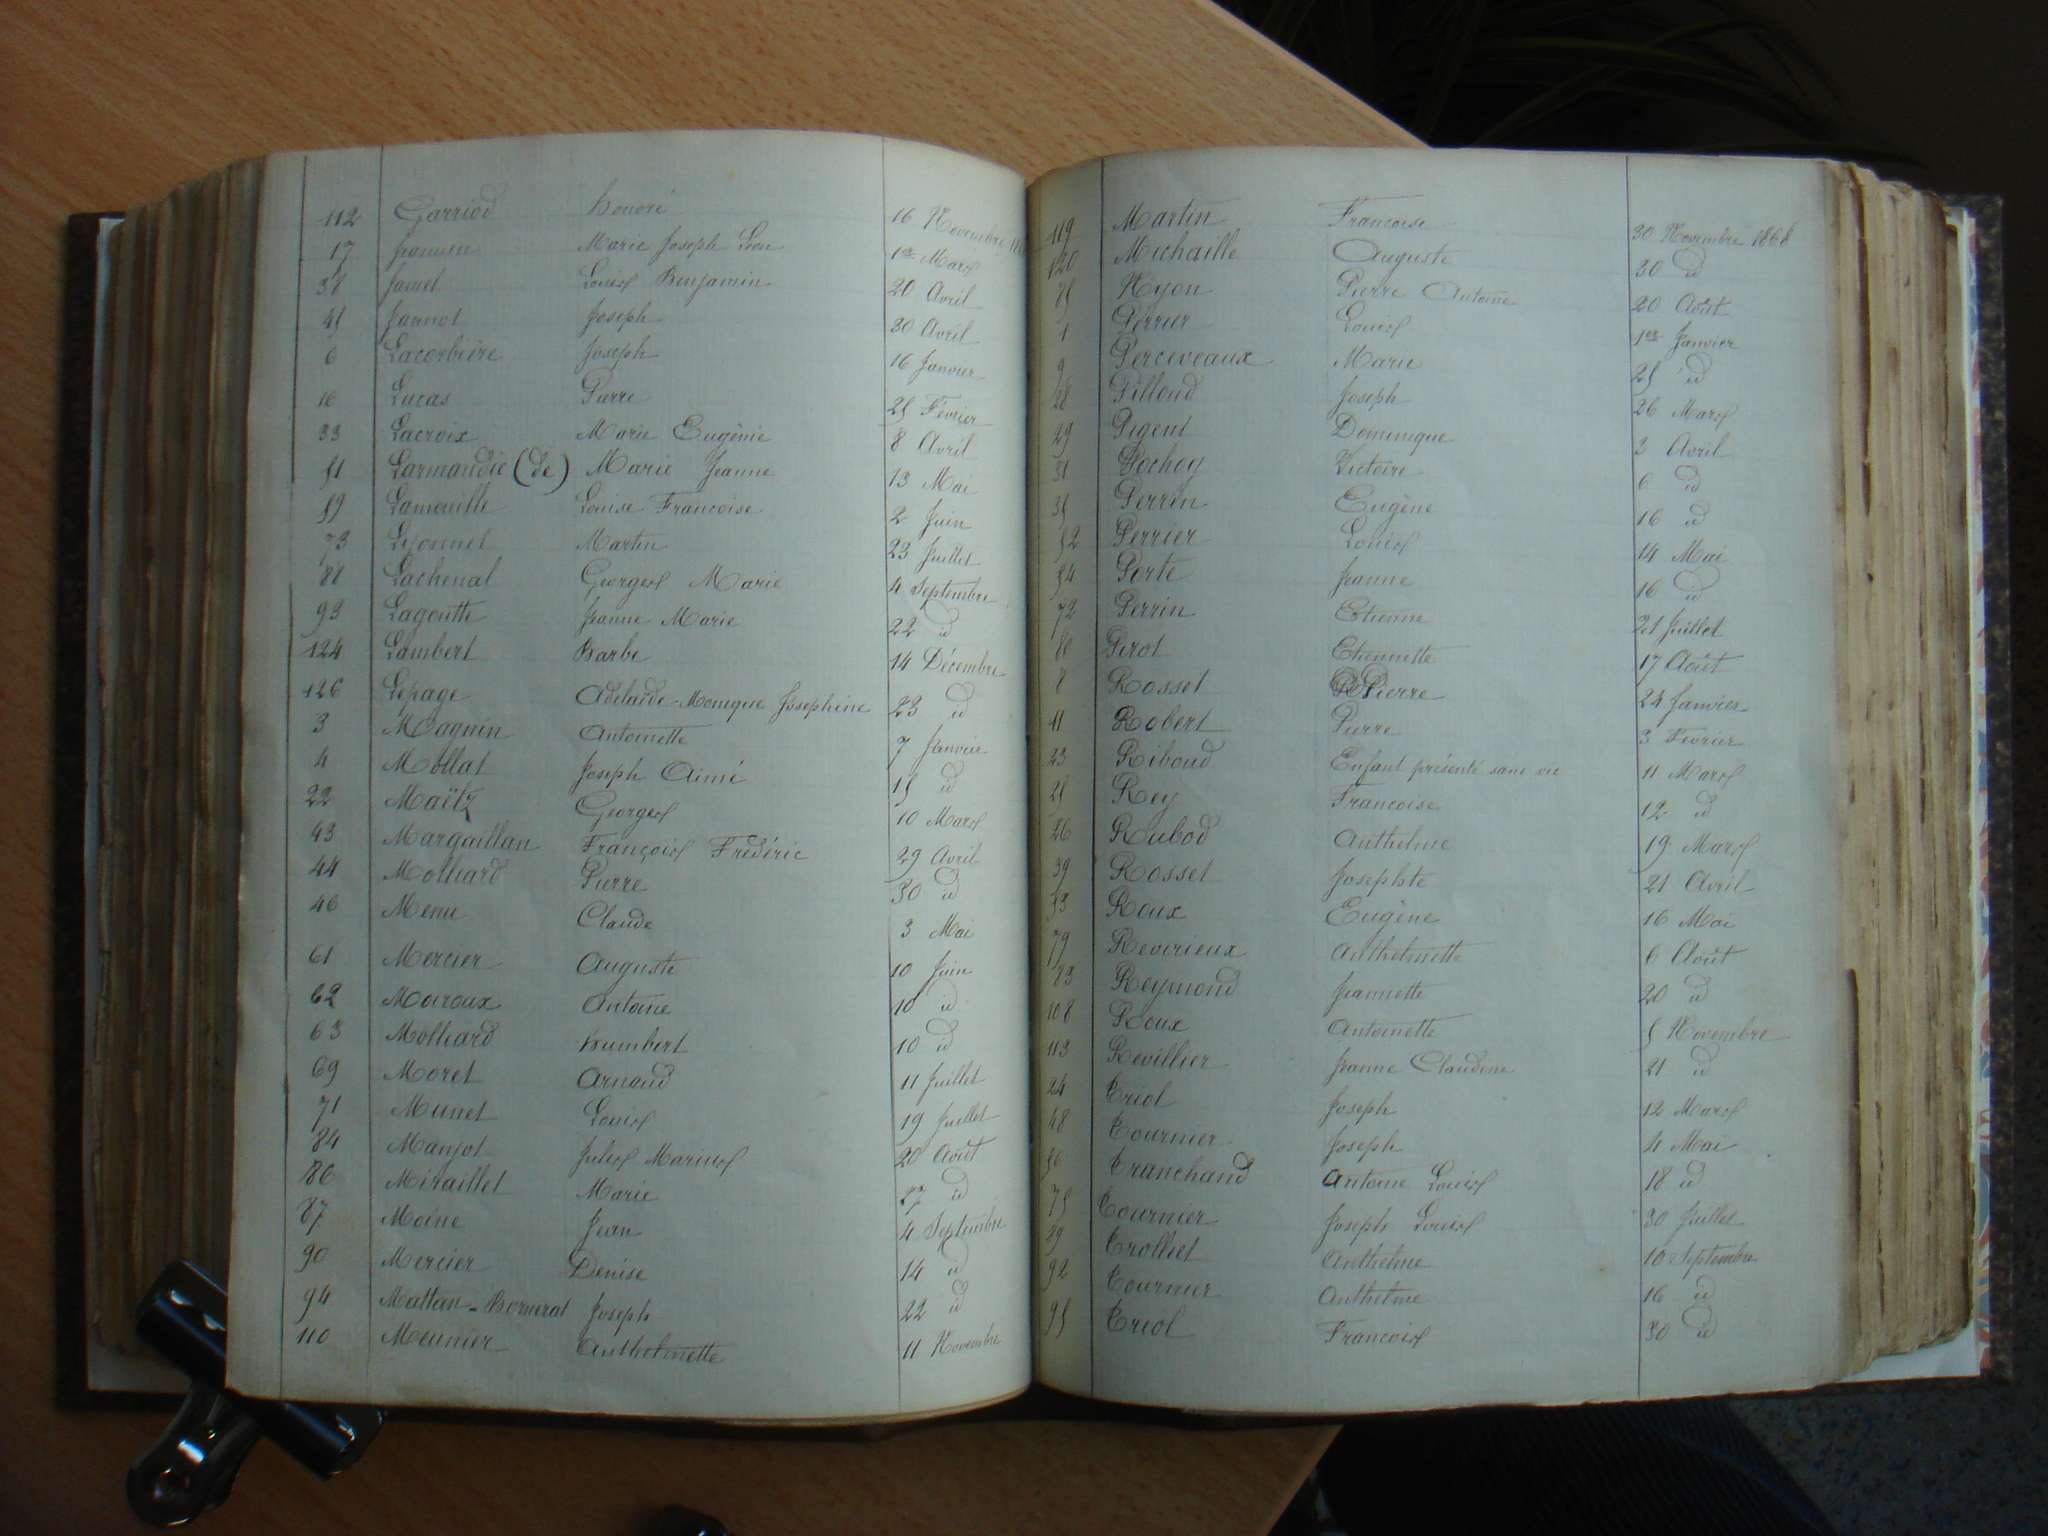 112 Garriod honoré 16 Novembre
17 Marie Joseph Léon 1er Mars
38 Jamet Louis Benjamin 20 Avril
45 Jannot Joseph 30 Avril
6 Lacorbière Joseph 16 Janvier
16 Lucas Pierre 25 Février
33 Lacroix Marie Eugénie 8 Avril
51 Larmandie (de) Marie Jeanne 13 Mai
59 Lamouille Louise Francoise 2 Juin
73 Lyonnet Martin 23 Juillet
88 Lachenal Georges Marie 4 Septembre
93 Lagoutte Jeanne Marie 22 id
124 Lambert Barbe 14 Décembre
126 Lepage Adelaide-Monique Josephine 23 id
3 Magnin Antoinette 7 Janvier
4 Mollat Joseph Aimé 15 id
22 Maëtz Georges 10 Mars
43 Marguillan François Frédéric 29 Avril
44 Molliard Pierre 30 id
46 Menu Claude 3 Mai
61 Mercier Auguste 10 Juin
62 Moiroux Antoine 10 id
63 Molliard humbert 10 id
69 Moret Arnaud 11 Juillet
71 Munet Louis 19 Juillet
84 Manjot Jules Marius 20 Août
86 Miraillet Marie 27 id
87 Moine Jean 4 Septembre
90 Mercier Denise 14 id
94 Joseph 22 id
110 Meunier Anthelmette 11 Novembre
119 Martin Francoise 30 Novembre 1868
120 Michaille Auguste 30 id
85 Nyon Pierre Antoine 20 Août
1 Perrier Louis 1er Janvier
9 Perceveaux Marie 25 id
28 Pilloud Joseph 26 Mars
29 Pigent Dominique 3 Avril
31 Pochoy Victoire 6 id
35 Perrin Eugène 16 id
52 Perrier Louis 14 Mai
54 Porte Jeanne 16 id
72 Perrin Etienne 21 Juillet
80 Pirot Etiennette 17 Août
8 Rosset Pierre 24 Janvier
11 Robert Pierre 3 Février
23 Riboud Enfant présenté sans vie 11 Mars
25 Rey Francoise 12 id
26 Rubod Anthelme 19 Mars
39 Rosset Josephte 21 Avril
53 Roux Eugène 16 Mai
79 Revirieux Anthelmette 6 Août
83 Reymond Jeannette 20 id
108 Roux Antoinette 5 Novembre
113 Revillier Jeanne Claudine 21 id
24 Triol Joseph 12 Mars
48 Tournier Joseph 4 Mai
56 Tranchand Antoine Louis 18 id
75 Tournier Joseph Louis 30 Juillet
89 Trolliet Anthelme 10 Septembre
92 Tournier Anthelme 16 id
95 Triol Francois 30 id